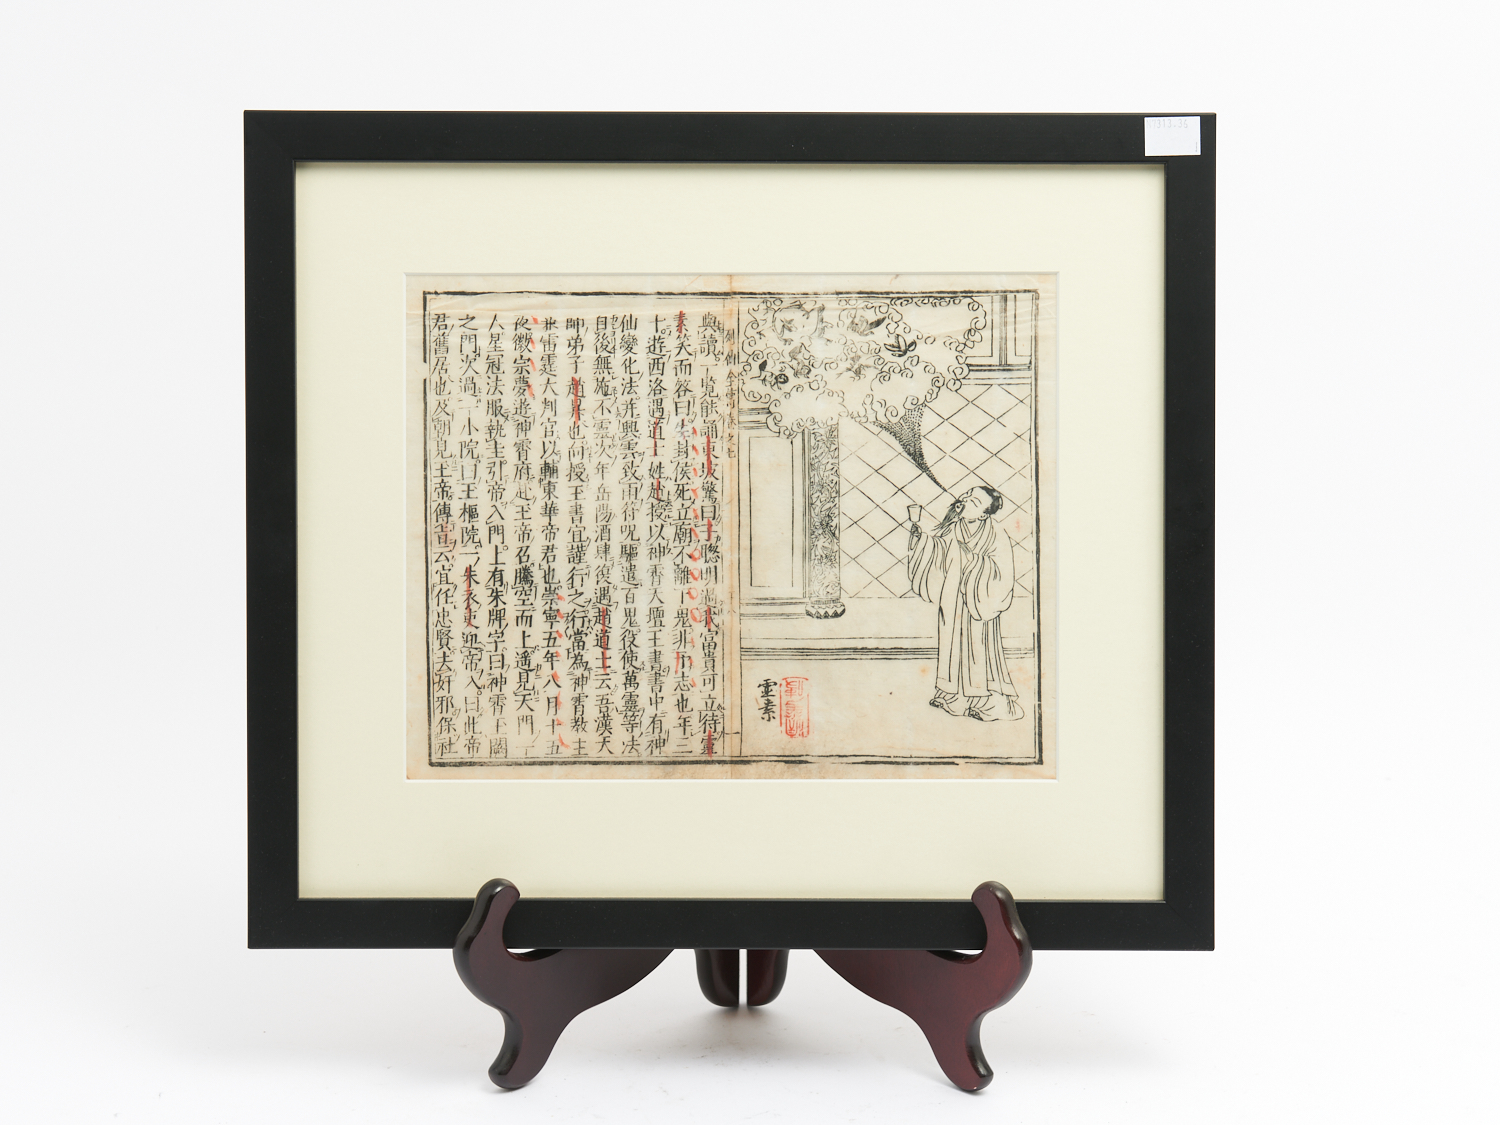 靈素
與讀一覧能誦東坡驚曰子聰明過我富貴可立待靈
素笑而答曰生封侯死立廟不離下鬼非予志也年三
十遊西洛遇道士姓趙授以神霄天壇玉書書中有神
仙變化法并興雲致雨符呪驅遣百鬼役使萬靈等法
自後無施不靈次年岳陽酒肆復遇趙道士云吾漢天
師弟子趙昇也向授玉書宜謹行之行當為神霄教主
兼雷霆大判官以輔東華帝君也崇寧五年八月十五
夜徽宗夢遊神霄府赴玉帝召騰空而上遙見天門二
人星冠法服執圭引帝入門上有朱牌字曰神霄玉闕
之門次過一小院曰玉樞院一朱衣吏迎帝入曰此帝
君舊居也及朝見玉帝傳旨云宜任忠賢去奸邪保社